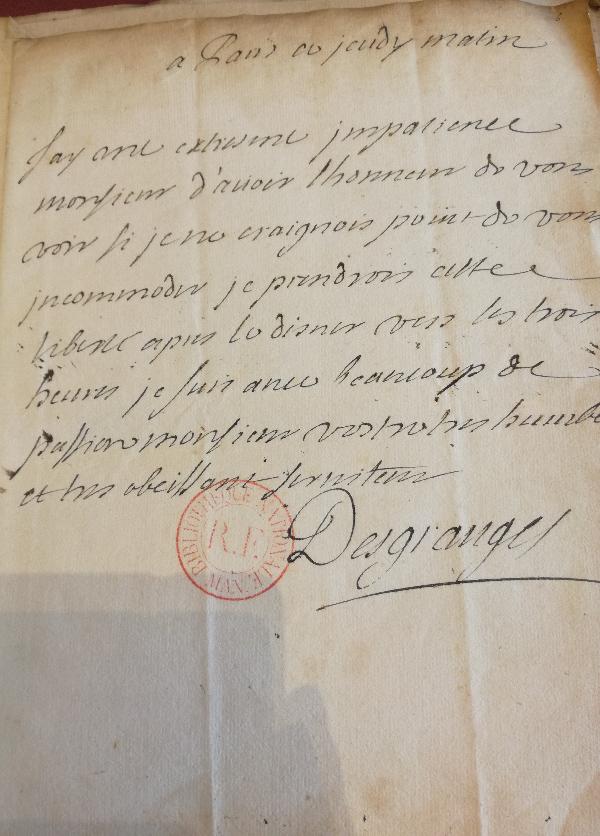 a Paris ce jeudy matin
jay une extresme jmpatience
monsieur d'auoir lhonneur de vous
voir si je ne craignois point de vous
jncommoder je prendrois cette
liberté apres le disner vers les trois
heures je suis auec beaucoup de
passion monsieur vostre tres humble
et tres obeissant seruiteur
Desgranges
BIBLIOTHEQUE NATIONALE MAN.
R.F.